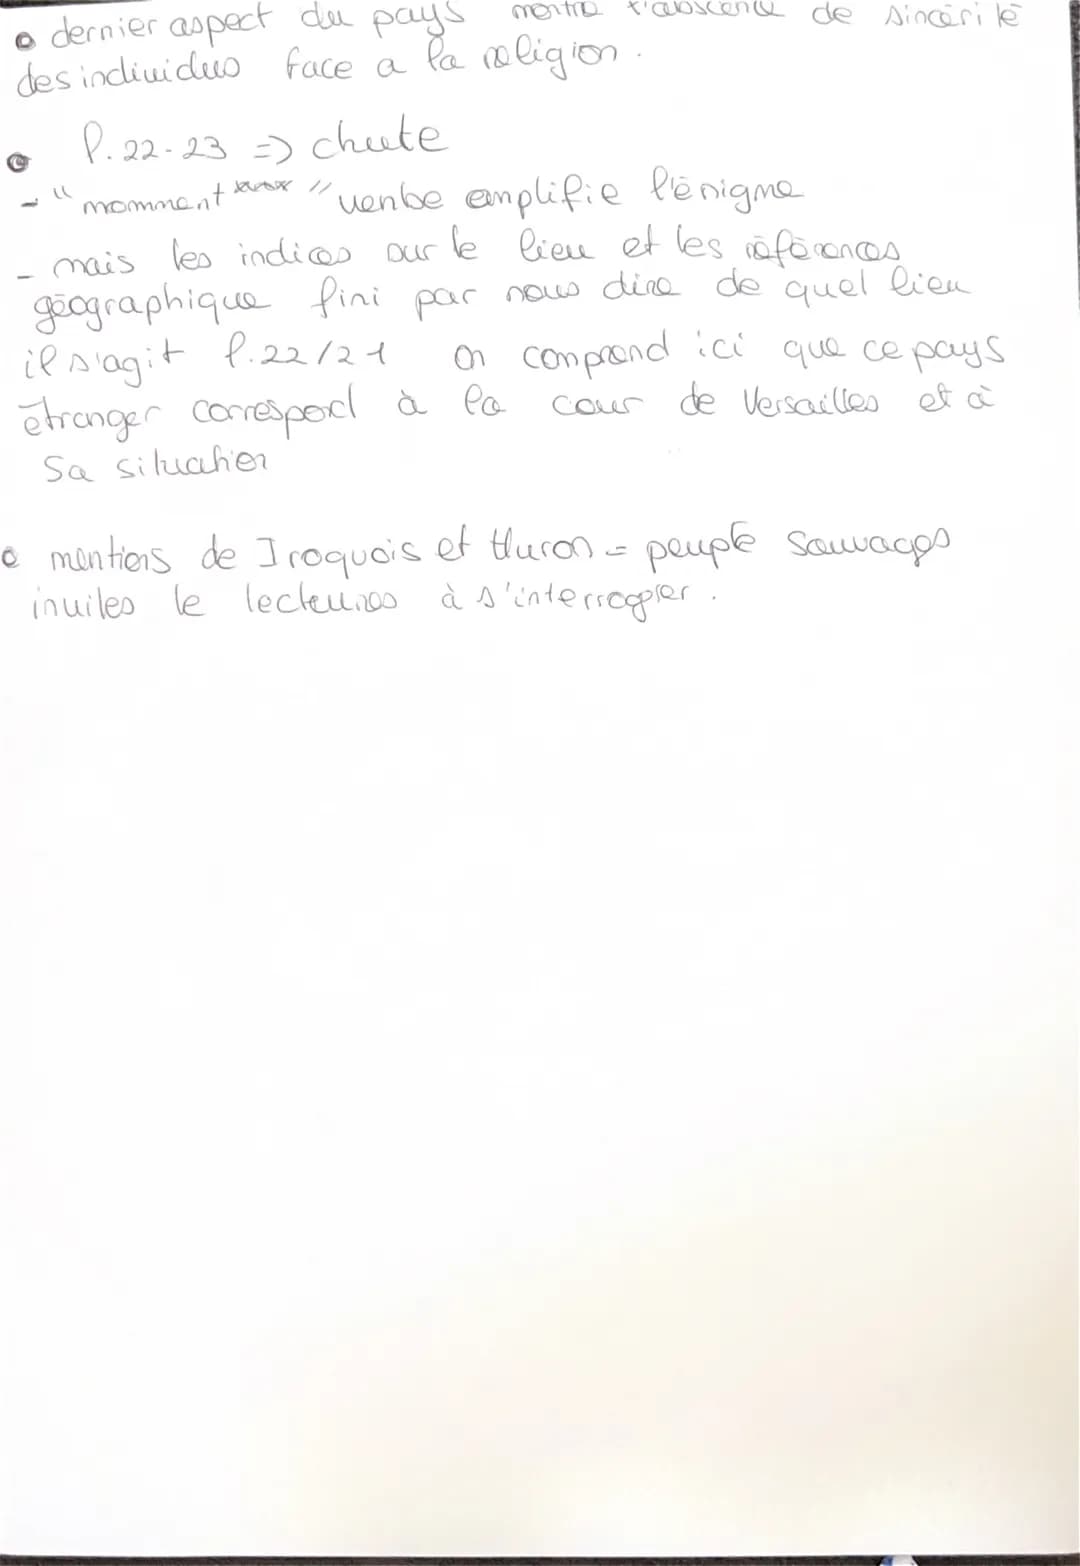 dernier aspect du pays montre l'abscence de sincérité
des individus face a la religion.
P. 22-23 => chute
- "momment " verbe amplifie l'énigme
- mais les indices sur le lieu et les références
géographique fini par nous dire de quel lieu
il s'agit l.22/21 on comprend ici que ce pays
étranger correspond à la cour de Versailles et à
sa situation
mentions de Iroquois et Huron = peuple sauvages
invites le lecteures à s'interroger.